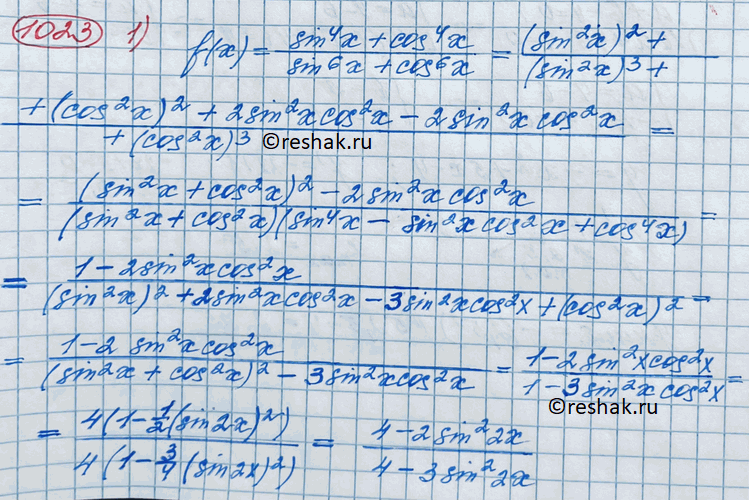 1023 1) f(x) = (sin⁴x + cos⁴x)/(sin⁶x + cos⁶x) = ((sin²x)² +)/((sin²x)³ +)
(+ (cos²x)² + 2sin²xcos²x − 2sin²x cos²x)/(+ (cos²x)³) =
©reshak.ru
= ((sin²x + cos²x)² − 2sin²x cos²x)/((sin²x + cos²x)(sin⁴x − sin²x cos²x + cos⁴x)) =
= (1 − 2sin²xcos²x)/((sin²x)² + 2sin²xcos²x − 3sin²xcos²x + (cos²x)²) =
= (1 − 2 sin²xcos²x)/((sin²x + cos²x)² − 3sin²xcos²x) = (1 − 2sin²xcos²x)/(1 − 3sin²xcos²x) =
©reshak.ru
= (4(1 − 1/2(sin2x)²))/(4(1 − 3/4(sin2x)²)) = (4 − 2sin²2x)/(4 − 3sin²2x)